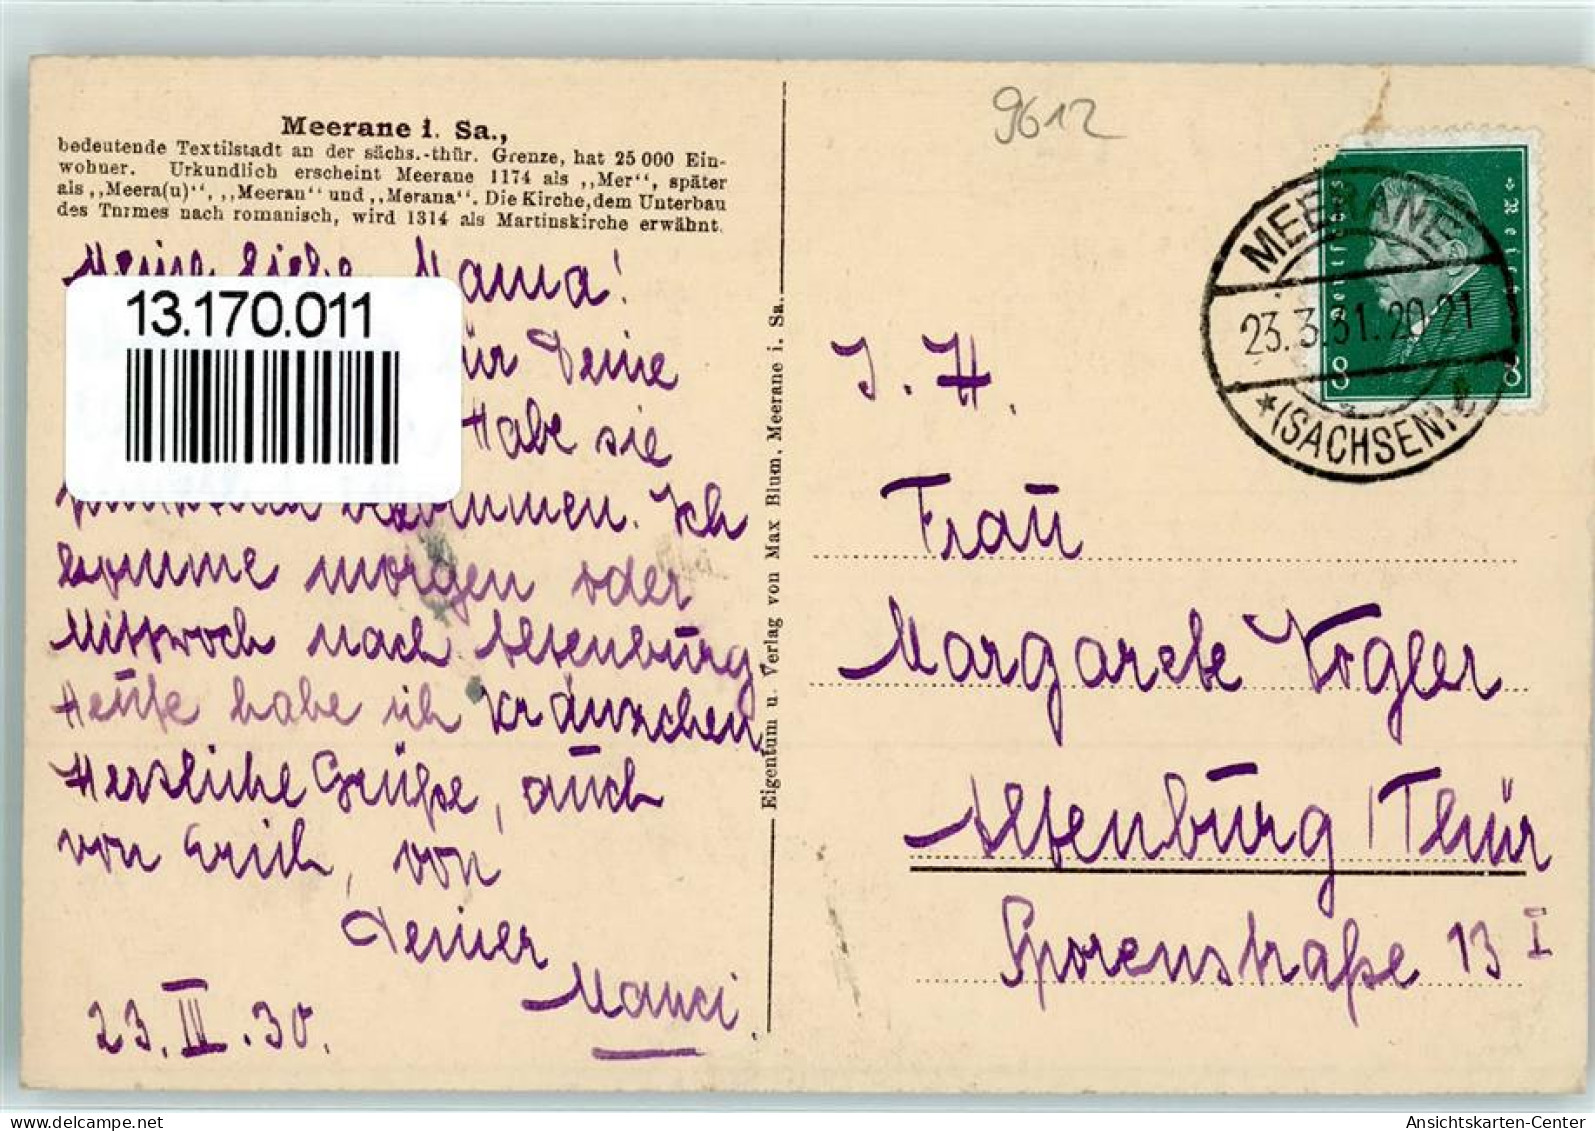 Meerane i. Sa.,
bedeutende Textilstadt an der sächs.-thür. Grenze, hat 25 000 Ein-
wohner. Urkundlich erscheint Meerane 1174 als „Mer“, später
als „Meera(u)“, „Meeran“ und „Merana“. Die Kirche, dem Unterbau
des Turmes nach romanisch, wird 1314 als Martinskirche erwähnt.
Meine liebe Mama!
13.170.011
für Deine
Habe sie
bekommen. Ich
komme morgen oder
Mittwoch nach Altenburg
Heute habe ich Kränzchen
Herzliche Grüße, auch
von Erich, von
Deiner
Manci
23.III.30.
Eigentum u. Verlag von Max Blum, Meerane i. Sa.
9612
MEERANE
23.3.31.20-21
*(SACHSEN)
Deutsches Reich
8 8
I. H.
Frau
Margarete Vogler
Altenburg/Thür
Sporenstraße 13 I
AnsichtskartenCenter.de
Ansichtskarten-Center